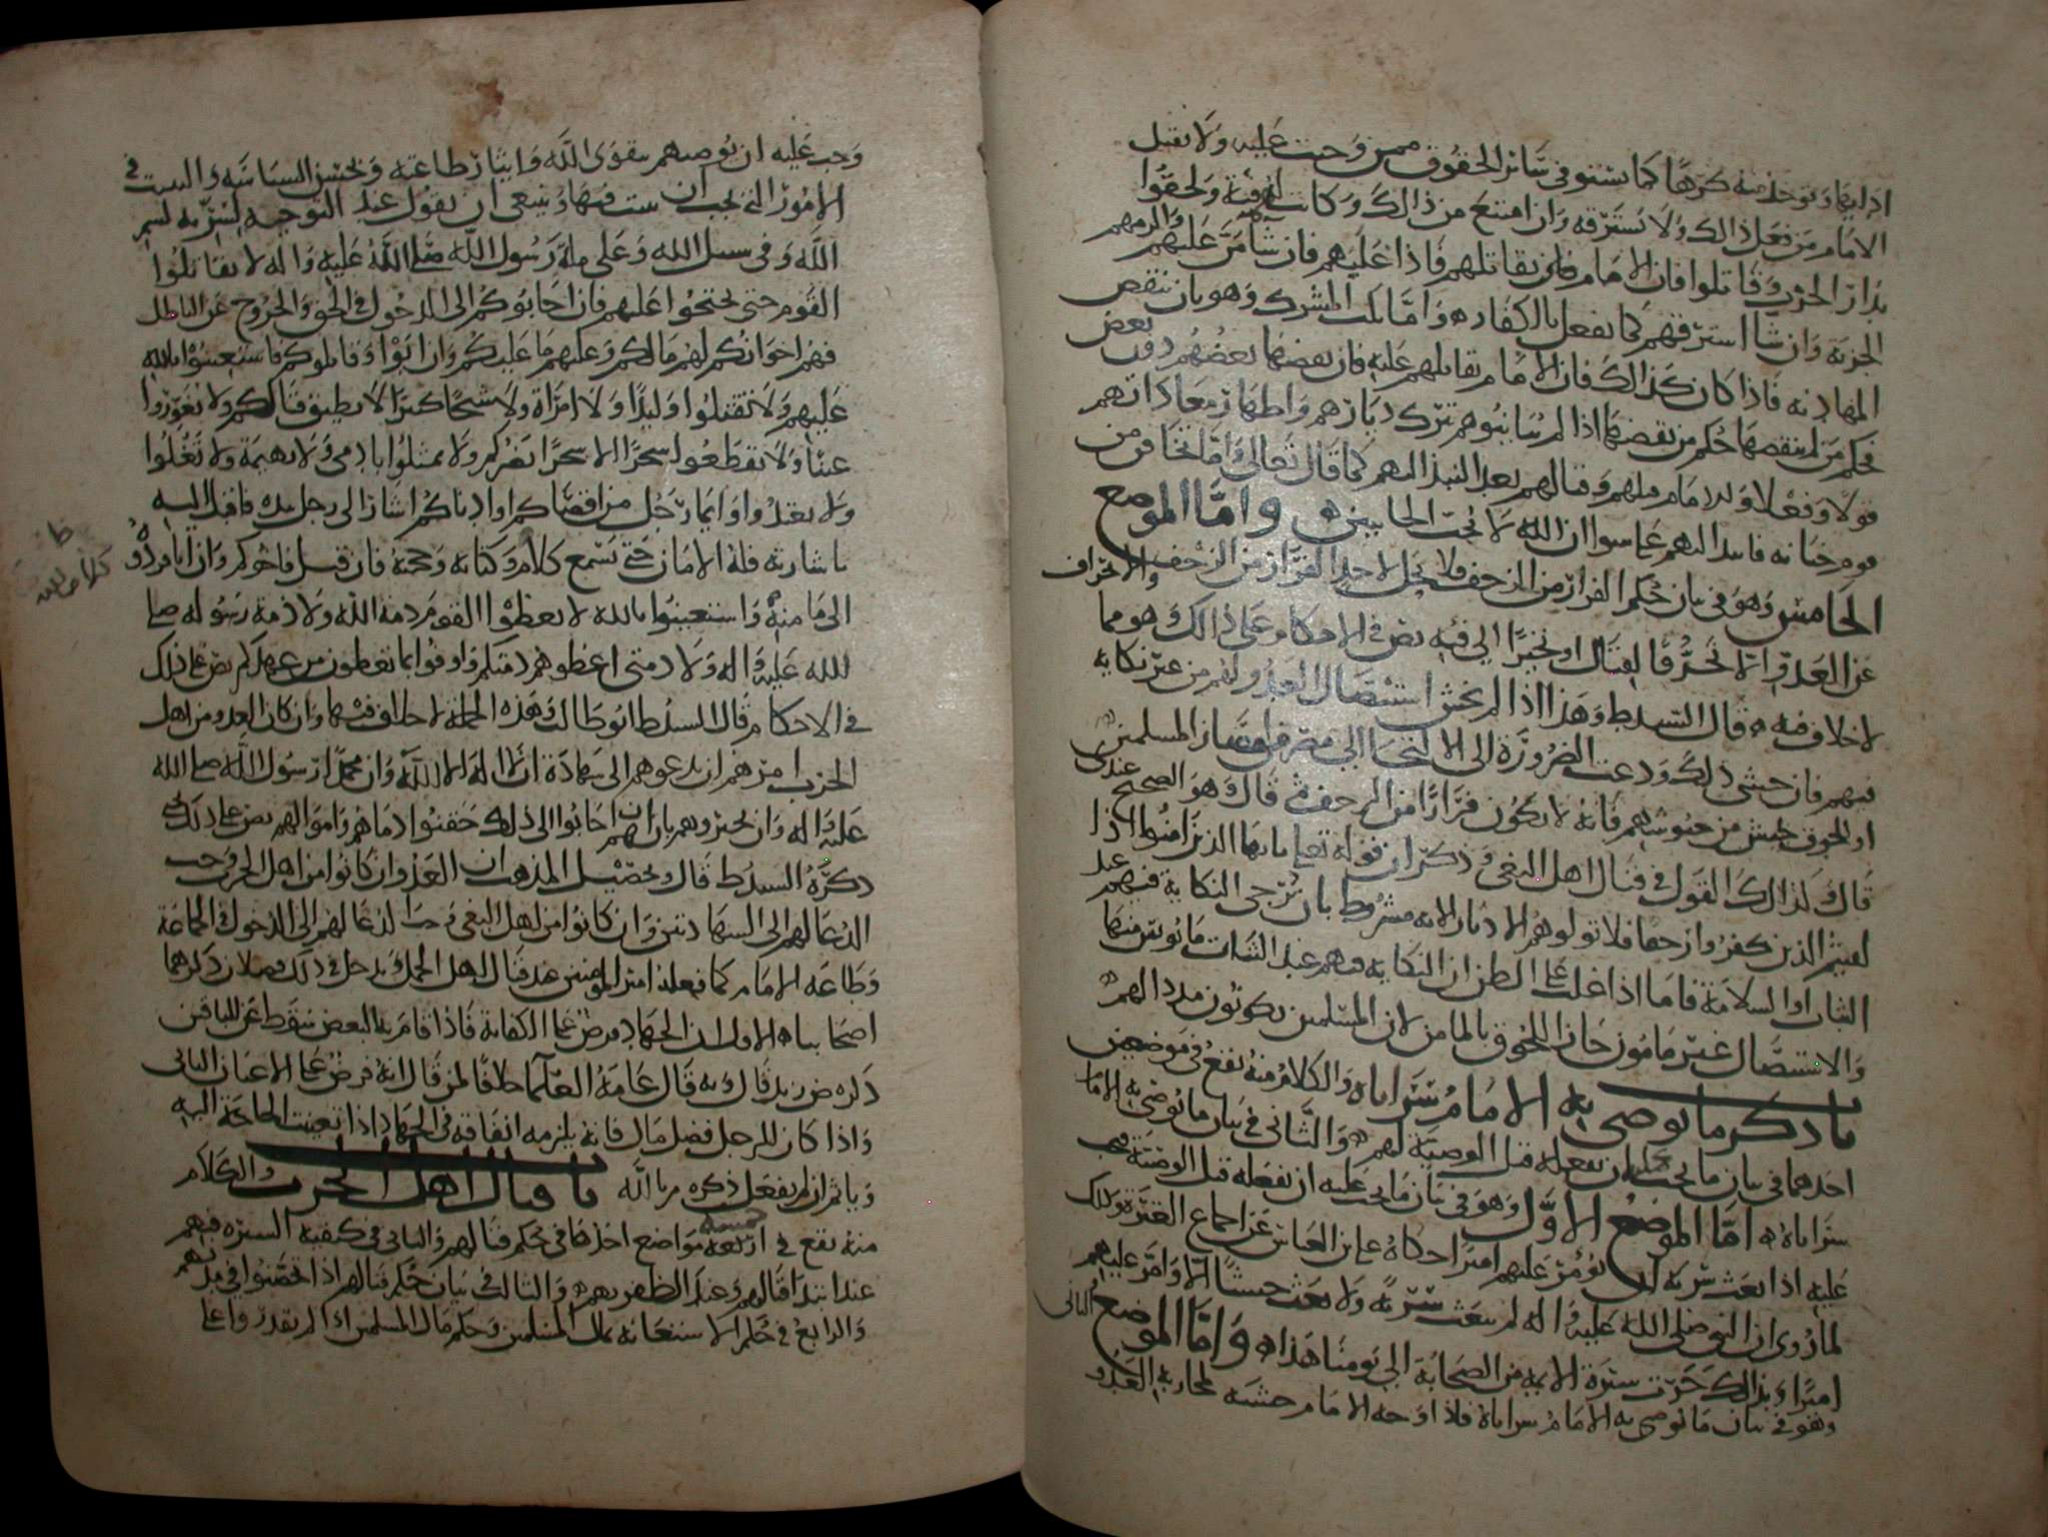 اداها وتوخذ منه كرها كما تستوفى سائر الحقوق ممن وجبت عليه ولا يقتل
الامام من فعل ذالك ولا يسترقه وان امتنع من ذالك وكانت لهم فئة ولحقوا
بدار الحرب وقاتلوا فان الامام يقاتلهم فاذا غلبهم فان شا من عليهم والزمهم
الجزية وان شا استرقهم كما يفعل بالكفار واما نكث المشرك وهو بان ينقض
المهادنه فاذا كان كذالك فان الامام يقاتلهم عليه فان نقضها بعضهم دون بعض
فحكم من لم ينقضها حكم من نقضها اذا لم يباينوهم بترك ديارهم واظهار معاداتهم
قولا وفعلا وللامام قتالهم بعد النبذ اليهم كما قال تعالى واما تخافن من
قوم خيانه فانبذ اليهم على سوا ان الله لا يحب الخاينين واما الموضع
الخامس وهو في بيان حكم الفرار من الزحف فلا يحل لاحد الفرار من الزحف والانحراف
عن العدو الا تحرفا لقتال او تحيزا الى فئه نص في الاحكام على ذالك وهو مما
لا خلاف فيه قال السيد ط وهذا اذا لم يخش استئصال العدو لهم من غير نكاية
فيهم فان خشي ذلك ودعت الضرورة الى الالتجا الى مصر من امصار المسلمين
او لحوق جيش من جيوشهم فانه لا يكون فرارا من الزحف قال وهو الصحيح عندى
قال كذالك القول في قتال اهل البغي وذكر ان قوله تعلى يايها الذين امنوا اذا
لقيتم الذين كفروا زحفا فلا تولوهم الادبار الايه مشروط بان ترجى النكاية فيهم عند
الثبات او السلامة فاما اذا غلب على الظن ان النكاية فيهم عند الثبات مايوس منها
والاستئصال غير مامون جاز اللحوق بالمامن لان المسلمين يكونون مددا لهم
باب ذكر ما يوصي به الامام سراياه والكلام منه يقع في موضعين
احدهما في بيان ما يجب عليه ان يفعله قبل الوصية لهم والثاني في بيان ما يوصي به الامام
سراياه اما الموضع الاول وهو في بيان ما يجب عليه ان يفعله قبل الوصية فيجب
عليه اذا بعث سرية ان يؤمر عليهم اميرا حكاه على بن العباس عن اجماع العترة وذلك
لما روى ان النبي صلى الله عليه واله لم يبعث سرية ولا بعث جيشا الا وامر عليهم
اميرا وبذالك جرت سيرة الايمة من الصحابة الى يومنا هذا واما الموضع الثاني
وهو في بيان ما يوصي به الامام سراياه فاذا وجه الامام جيشه لمحاربة العدو
وجب عليه ان يوصيهم بتقوى الله وايثار طاعته وبحسن السياسة والتثبت في
الامور التي يجب ان يتثبت فيها وينبغي ان يقول عند التوجيه لسريه بسم
الله وفي سبيل الله وعلى ملة رسول الله صلى الله عليه واله لا تقاتلوا
القوم حتى تحتجوا عليهم فان اجابوكم الى الدخول في الحق والخروج عن الباطل
فهم اخوانكم لهم مالكم وعليهم ما عليكم وان ابوا وقاتلوكم فاستعينوا بالله
عليهم ولا تقتلوا وليدا ولا امراة ولا شيخا كبيرا لا يطيق قتالكم ولا تغوروا
عينا ولا تقطعوا شجرا الا شجرا يضركم ولا تمثلوا بادمي ولا بهيمة ولا تغلوا
ولا تعتدوا وايما رجل من اقصاكم او ادناكم اشار الى رجل بيده فاقبل اليه
باشارته فله الامان حتى يسمع كلام وكتابه وحجته فان قبل فاخوكم وان ابا فردوه
ظ
كلام الله
الى مامنه واستعينوا بالله لا تعطوا القوم ذمة الله ولا ذمة رسوله صلى
الله عليه واله ولا ذمتى اعطوهم ذمتكم واوفوا بما تعطون من عهدكم نص على ذلك
في الاحكام قال السيد ط ابو طالب وهذه الجملة لا خلاف فيها وان كان العدو من اهل
الحرب امرهم ان يدعوهم الى شهادة ان لا اله الا الله وان محمدا رسول الله صلى الله
عليه واله وان يخبروهم بانهم ان اجابوا الى ذلك حقنوا دماهم واموالهم نص على ذلك
ذكره السيد ط قال وتحصيل المذهب ان العدو ان كانوا من اهل الحرب وجب
الدعا لهم الى الشهادتين وان كانوا من اهل البغي وجب الدعا لهم الى الدخول في الجماعة
وطاعه الامام كما فعله امير المومنين عند قتال اهل الجمل ويدخل في ذلك فصلان ذكرهما
اصحابنا الاول ان الجهاد فرض على الكفاية فاذا قام به البعض سقط عن الباقين
ذكره ض زيد قال وبه قال عامة العلما خلافا لمن قال انه فرض على الاعيان الثاني
واذا كان للرجل فضل مال فانه يلزمه انفاقه في الجهاد اذا تعينت الحاجة اليه
وياثم ان لم يفعل ذكره م بالله باب قتال اهل الحرب والكلام
منه يقع في اربعة خمسة مواضع احدها في حكم قتالهم والثاني في كيفية السيره فيهم
عند ابتدا قتالهم وعند الظفر بهم والثالث في بيان حكم قتالهم اذا تحصنوا في مدنهم
والرابع في حكم الاستعانه بمال المسلمين وحكم مال المسلمين اذا لم يقدروا على